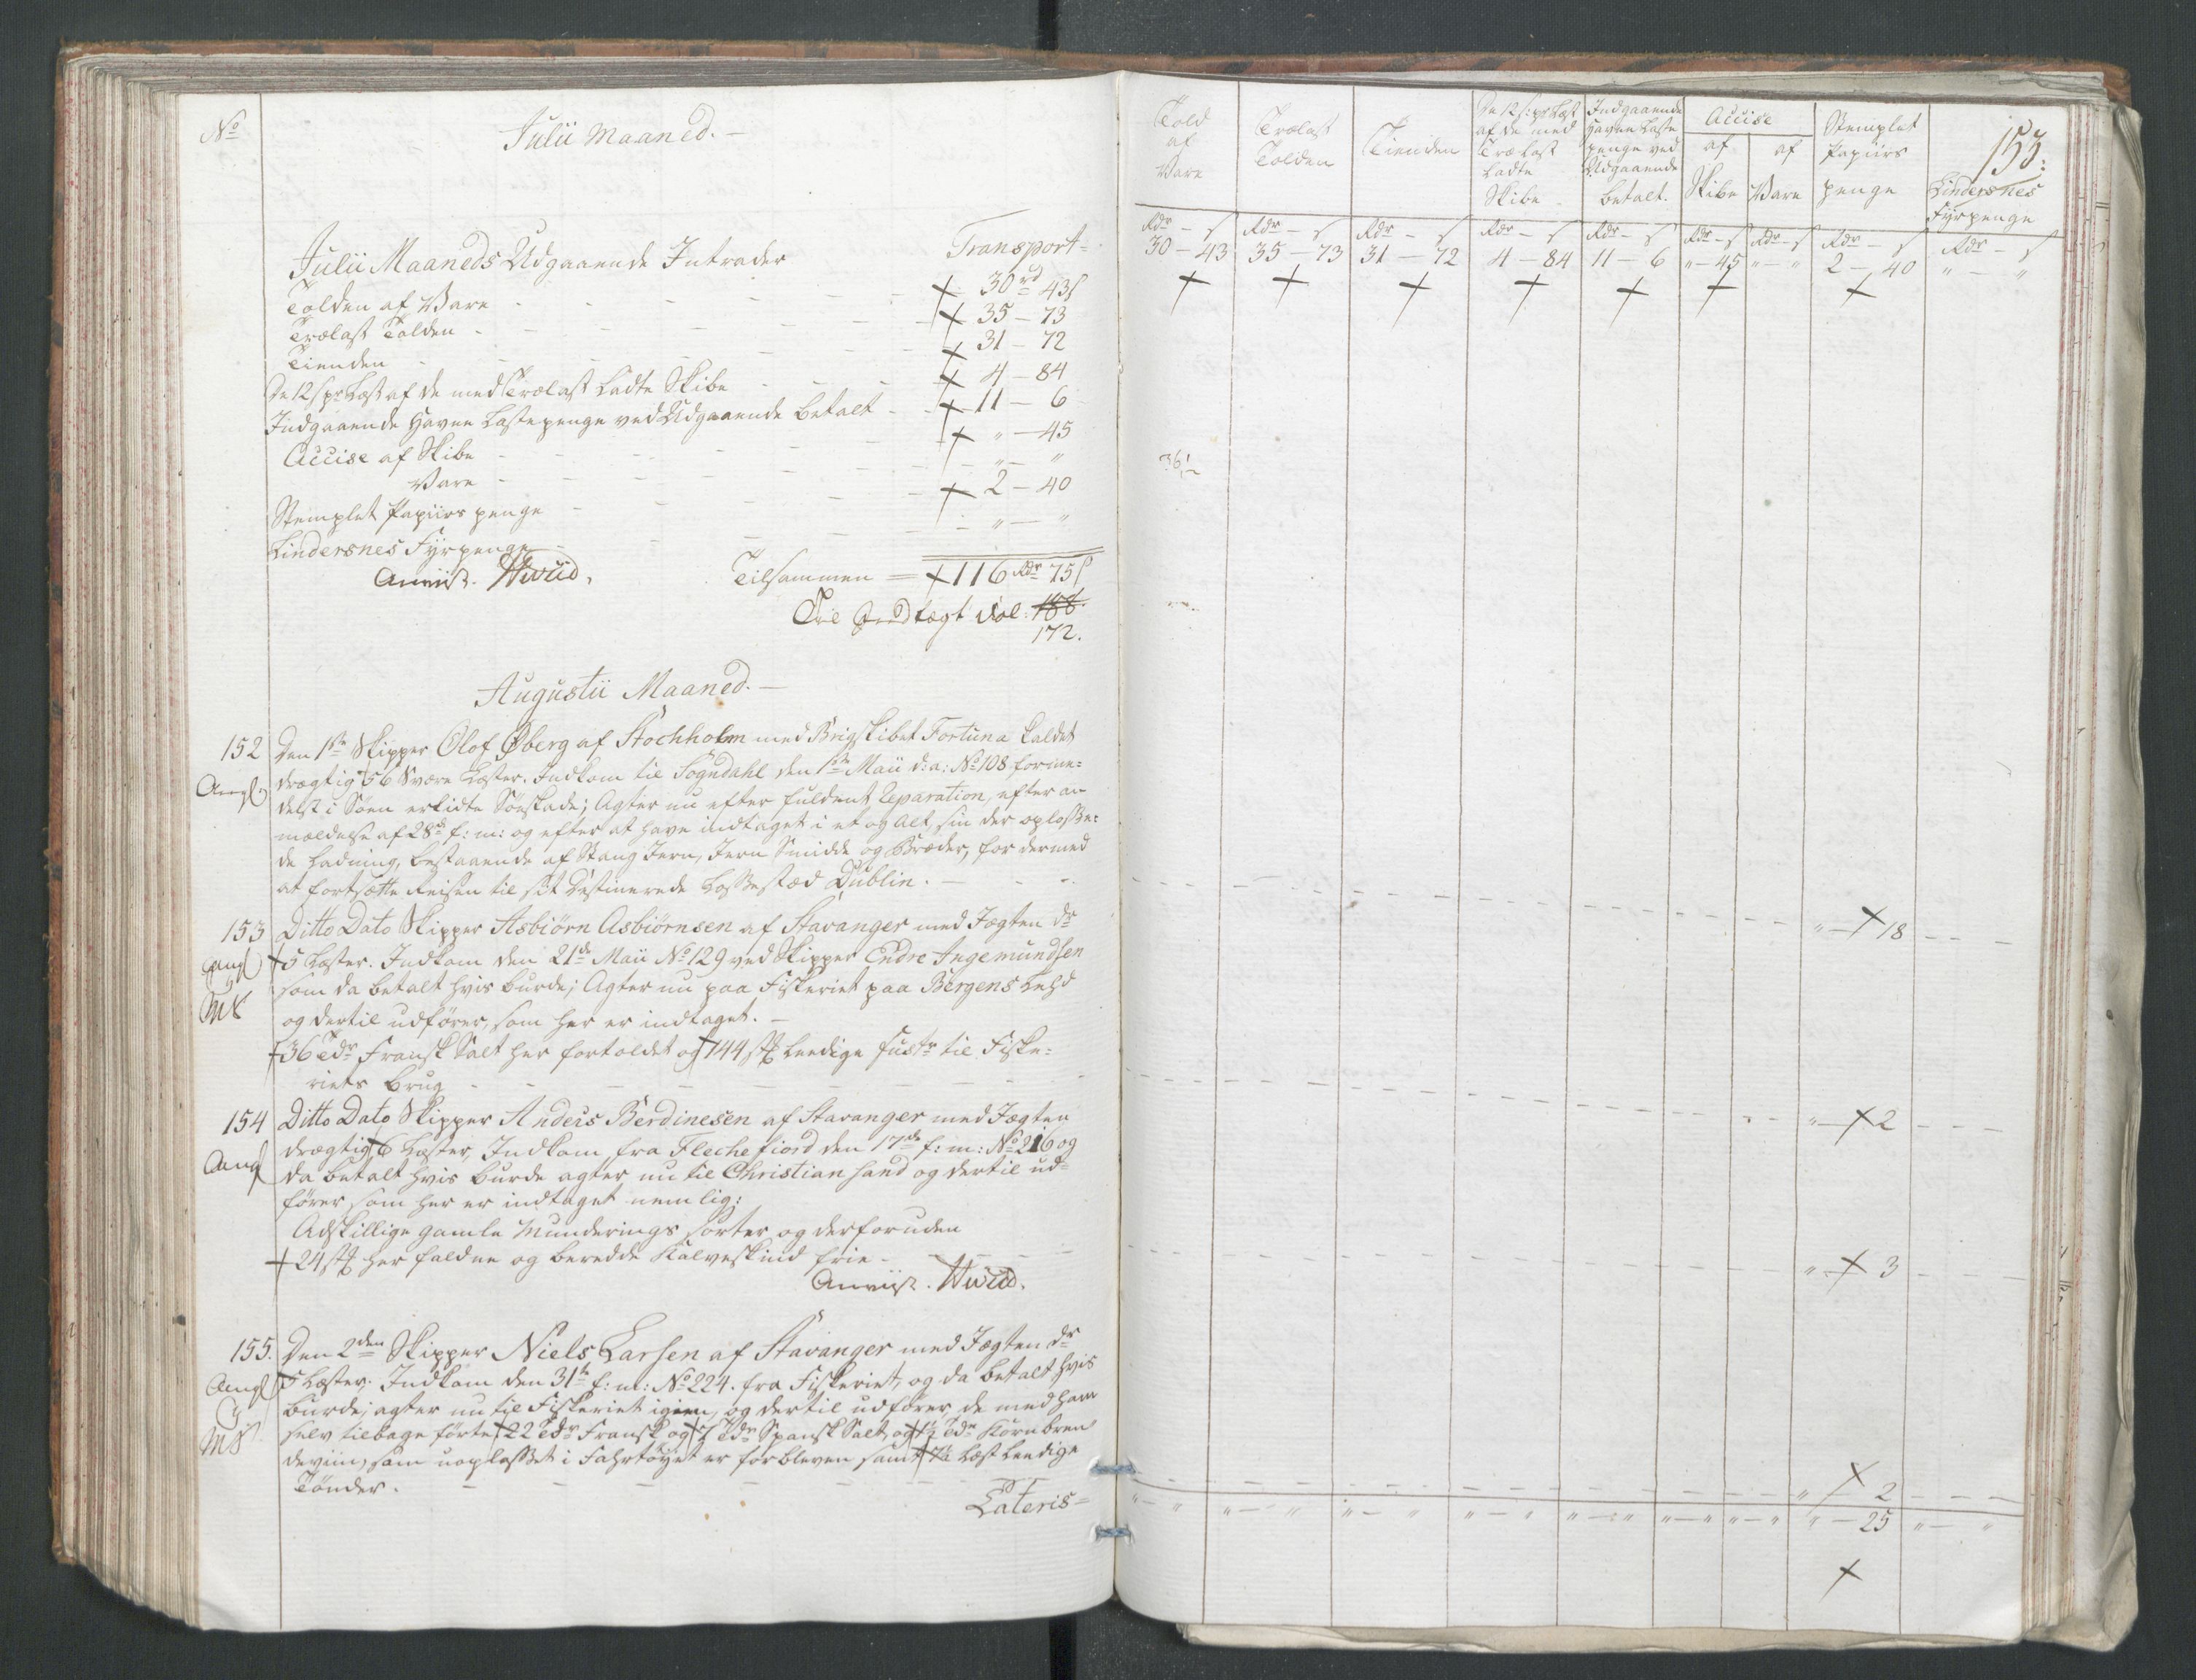 No
Julii Maaned.
Julii Maaneds Udgaaende Intrader Transport
Tolden af Vare 30 rd 43 s
Trælast Tolden 35 – 73
Tienden 31 – 72
De 12 s pr Læst af de med Trælast ladte Skibe 4 – 84
Indgaaende Havne Lastepenge ved Udgaaende betalt 11 – 6
Accise af Skibe " – 45
Vare " – "
Stemplet Papiirs penge 2 – 40
Lindersnes Fyrpenge " – "
Tilsammen = 116 Rdr 75 s
Til Indtægt Vol: 188.
172.
Augustii Maaned.
152 Den 1ste Skipper Olof Øberg af Stochholm med Brigskibet Fortuna kaldet
drægtig 56 Svære Læster. Indkom til Sogndahl den 1ste Maii d: a: No 108 forme-
delst i Søen erlidte Søeskade; Agter nu efter fuldent Reparation, efter an
mældelse af 28de f: m: og efter at have indtaget i et og Alt, sin der oplosse-
de Ladning, bestaaende af Stang Jern, Jern Smidde og Bræder, for dermed
at fortsætte Reisen til sit Destinerede Lossestæd Dublin.
153 Ditto Dato Skipper Asbiørn Asbiørnsen af Stavanger med Jægten dr
5 Læster. Indkom den 21de Maii No 129 ved Skipper Endre Ingemundsen
som da betalt hvis burde; Agter nu paa Fiskeriet paa Bergens Lehd
og dertil udfører, som her er indtaget.
36 Tdr Fransk Salt her fortoldet og 144 st leedige fust. til Fiske-
riets Brug
154 Ditto Dato Skipper Anders Berdinesen af Stavanger med Jægten
drægtig 6 Læster, Indkom fra Flechefiord den 17de f: m: No 216 og
da betalt hvis burde agter nu til Christiansand og dertil ud-
fører som her er indtaget nemlig:
Adskillige gamle Munderings sorter og derforuden
24 st her faldne og beredde Kalveskind frie
155. Den 2den Skipper Niels Larsen af Stavanger med Jægten dr
5 Læster. Indkom den 31te f: m: No 224. fra Fiskeriet, og da betalt hvis
burde; agter nu til Fiskeriet igien, og dertil udfører de med ham
selv tilbage førte 22 Tdr Fransk og Tdr Spansk Salt, og ½ Tdr Korn bren
deviin, som uoplosset i Fahrtøyet er forbleven samt Læst leedige
Tønder.
Lateris
153:
Told af Vare
Trælast Tolden
Tienden
De 12 s: pr Læst af de med Trælast ladte Skibe
Indgaaende Havne Laste penge ved Udgaaende betalt.
Accise
af Skibe
af Vare
Stemplet Papiirs penge
Lindersnes Fyrpenge
Rdr – s Rdr – s Rdr – s Rdr – s Rdr – s Rdr – s Rdr – s Rdr – s Rdr – s
30 – 43 35 – 73 31 – 72 4 – 84 11 – 6 " – 45 " – " 2 – 40 " – "
" – 18
" – 2
" – 3
" 2
" – " " – " " – " " – " " – " " – " " – " " – 25 " – "